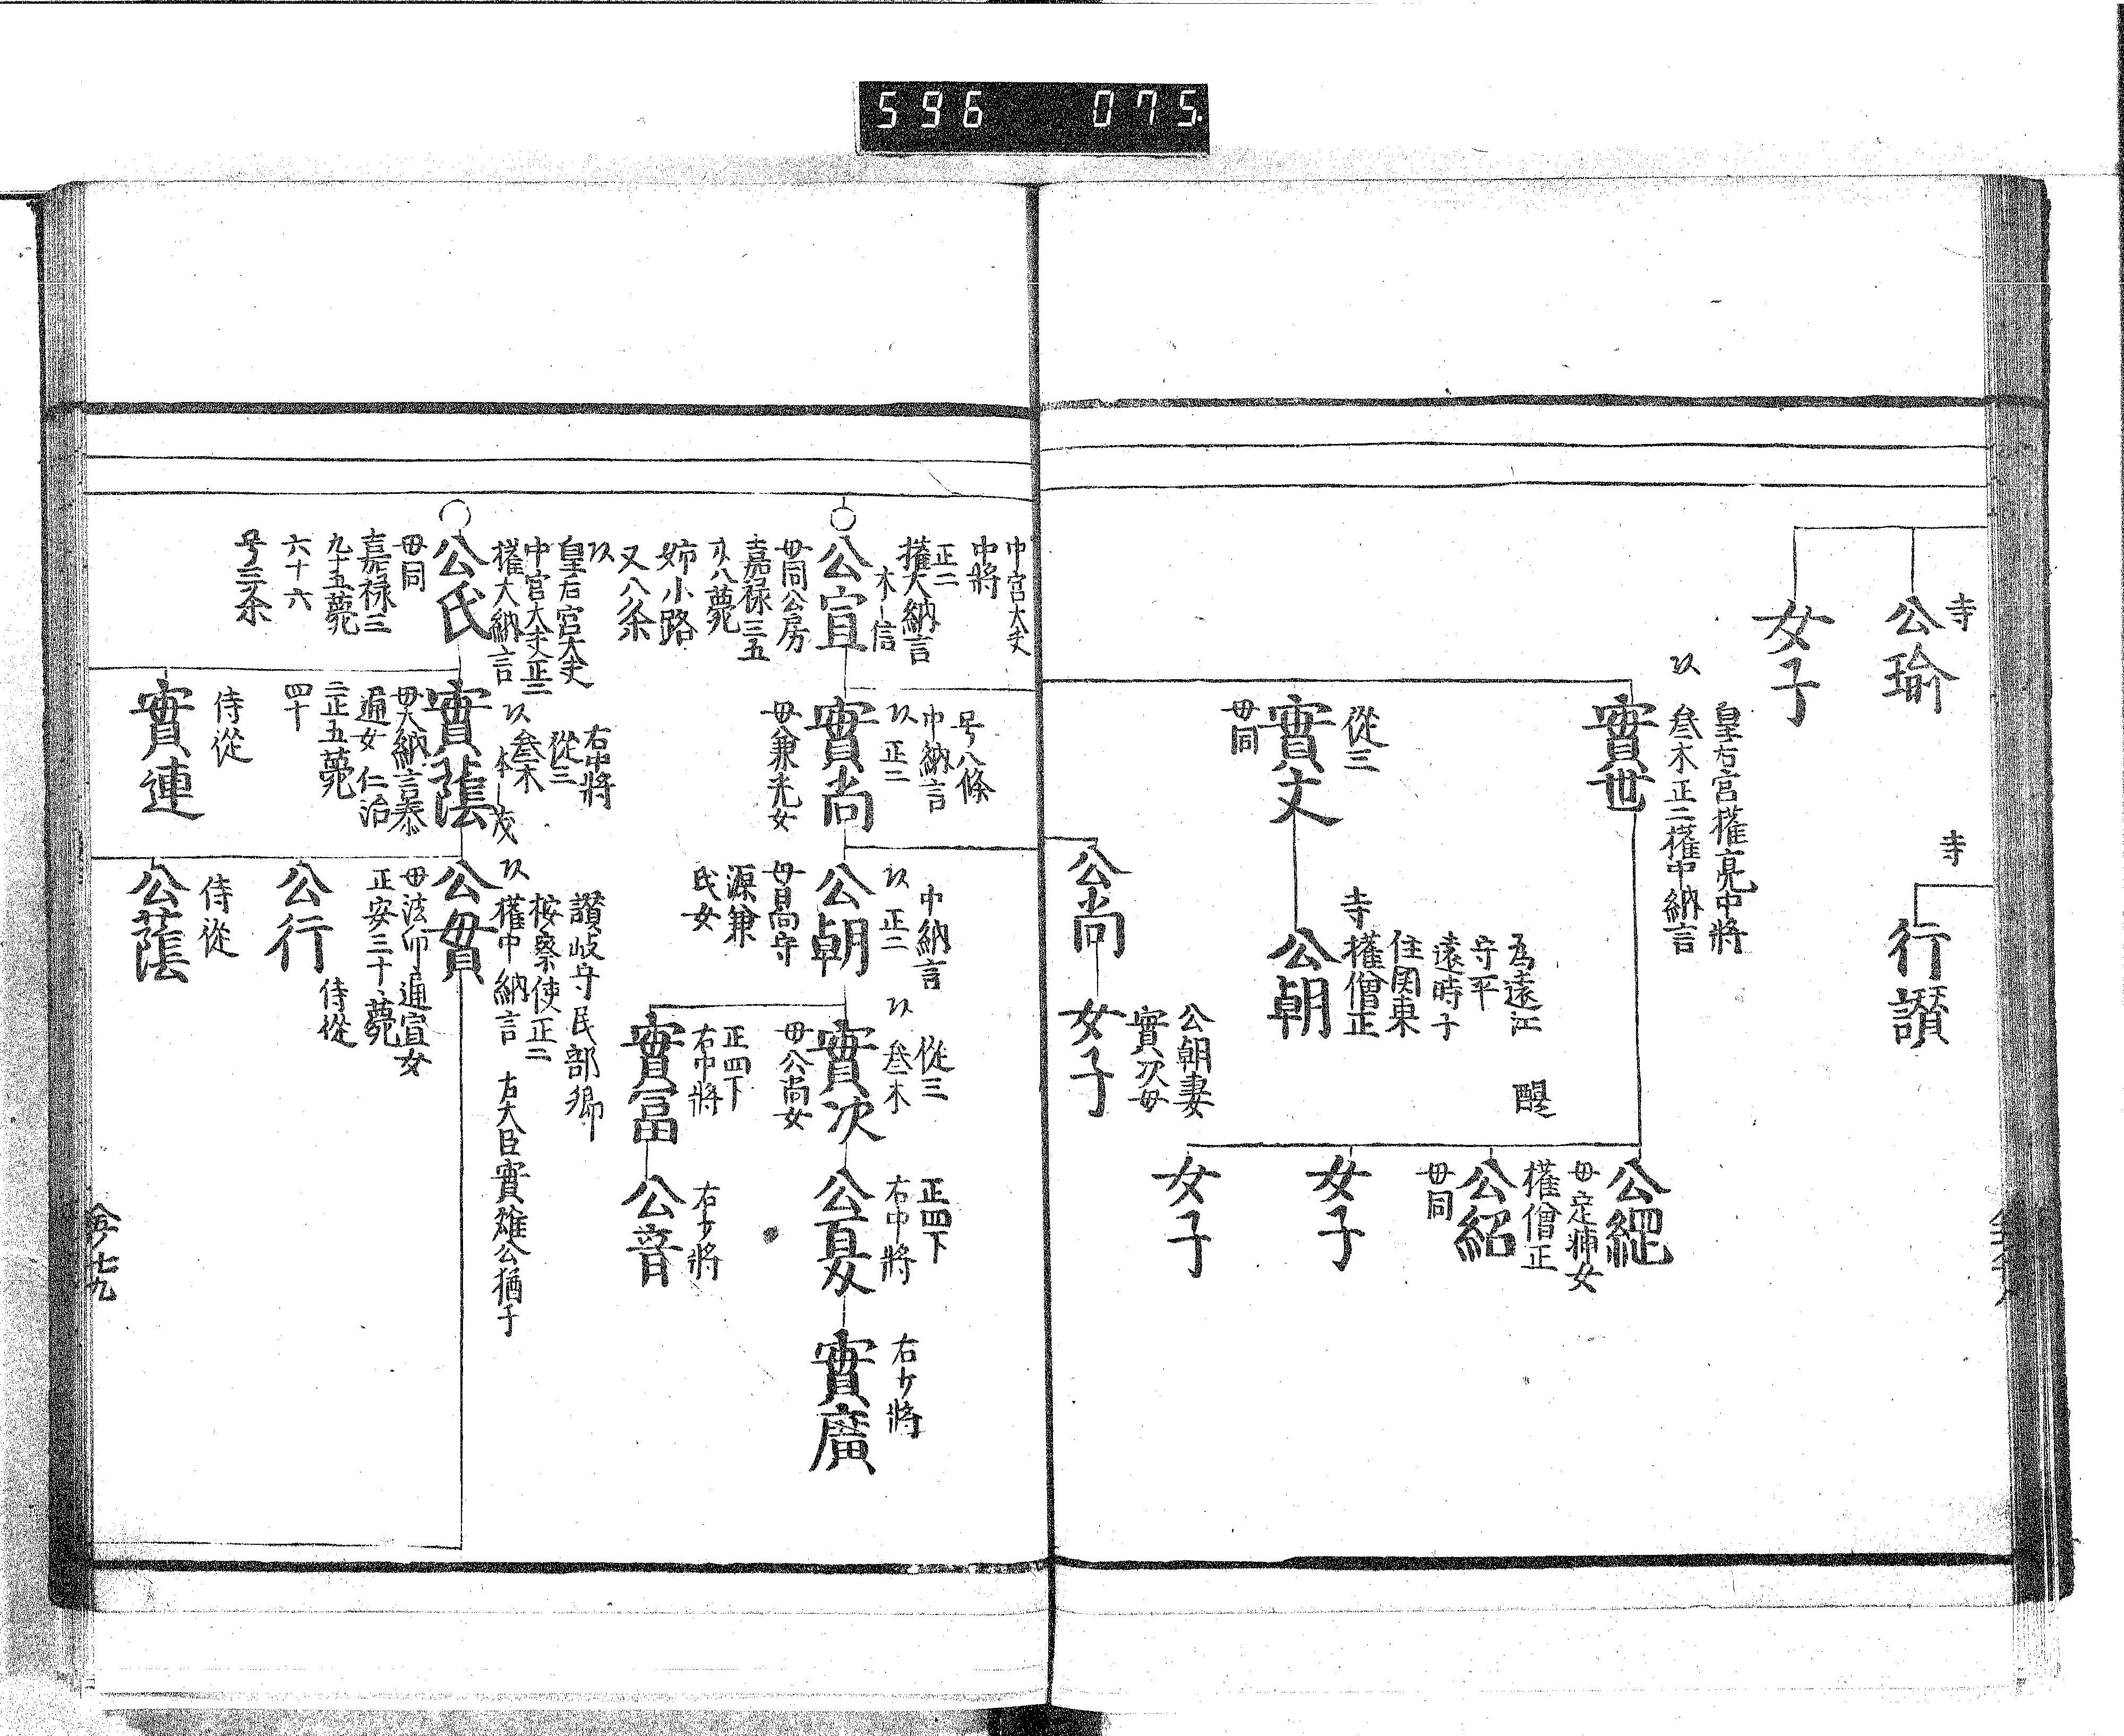 596 075
寺
公瑜
女子
寺
行讃
皇右宮權亮中將
叅木正二權中納言
實世
從三
實文
毋同
爲遠江
守平
遠時子
住関東
寺
權僧正
公朝
醍
公緦
毋定輔女
權僧正
公紹
毋同
女子
女子
公尚
公朝妻
實次毋
女子
中宮大夫
中將
正二
權大納言
木信
公宣
毋同公房
嘉禄三五
廿八薨
姉小路
又八条
号八條
中納言
正二
實尚
毋兼光女
中納言
正二
公朝
毋日向守
源兼
氏女
從三
叅木
實次
毋公尚女
正四下
右中將
實富
正四下
右中將
公夏
右少將
公音
右少將
實廣
皇后宮大夫
中宮大夫正二
權大納言
公氏
毋同
嘉禄三
九十五薨
六十六
号三条
右中將
從三
叅木
本茂
實蔭
毋大納言泰
通女 仁治
二正五薨
四十
侍從
實連
讃岐守民部卿
按察使正二
權中納言 右大臣實雄公猶子
公貫
毋法印通宣女
正安三十、薨
侍從
公行
侍從
公蔭